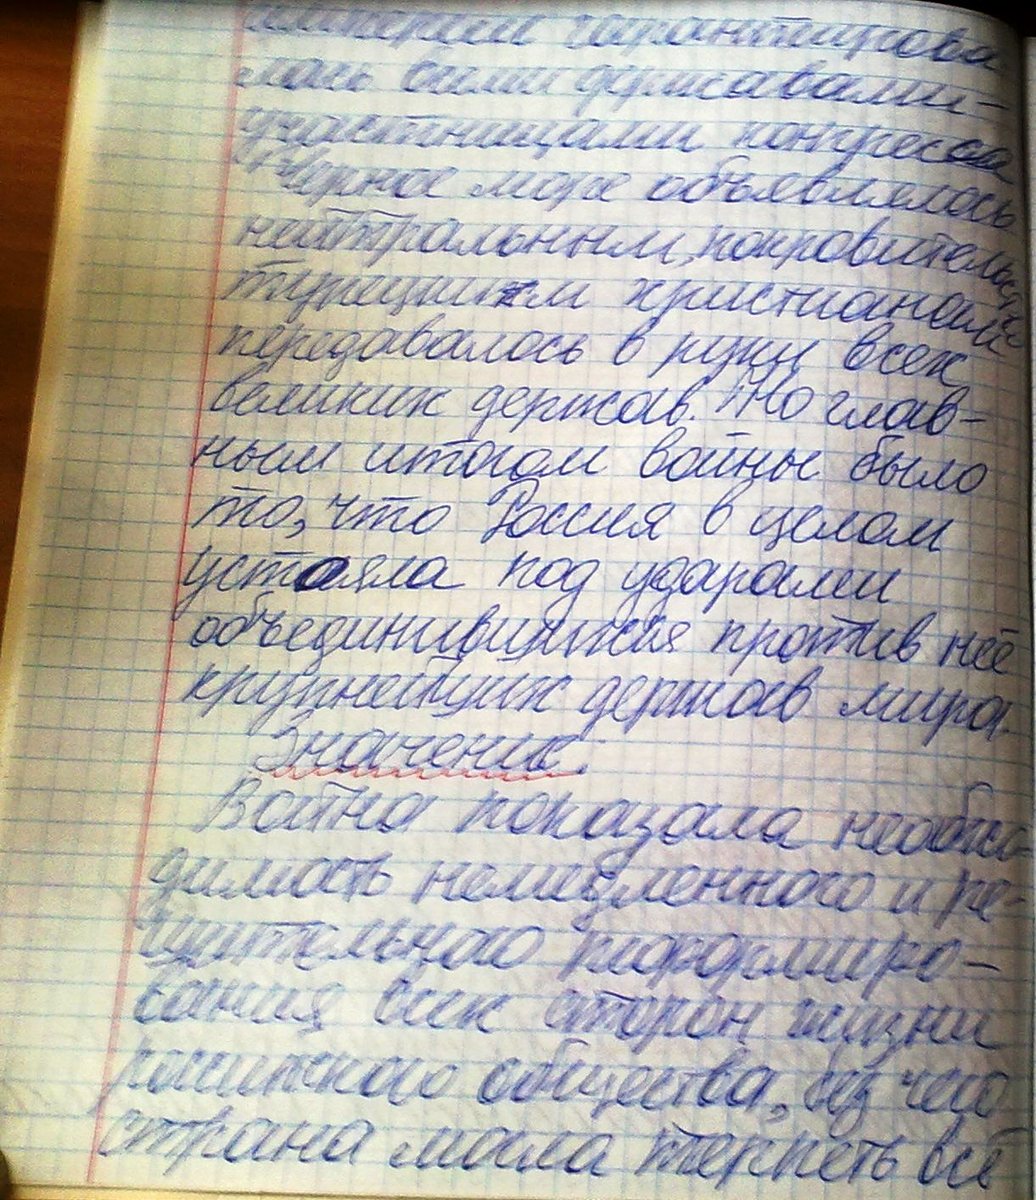 империи гарантирова
лась всеми державами-
участницами конгресса
Черное море объявлялось
нейтральным, покровительство
турецким христианам
передавалось в руки всех
великих держав. Но глав-
ным итогом войны было
то, что Россия в целом
устояла под ударами
объединившихся против неё
крупнейших держав мира.
Значение.
Война показала необхо-
димость немедленного и ре-
шительного реформиро-
вания всех сторон жизни
российского общества, без чего
страна могла терпеть всё